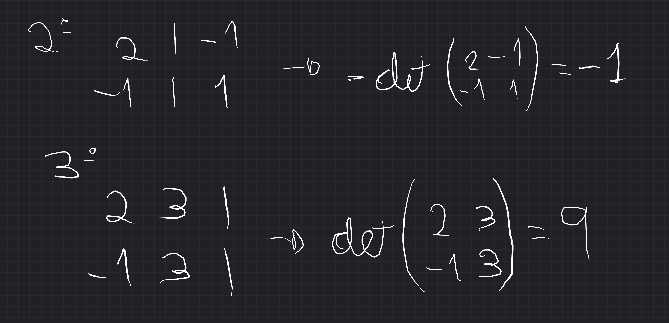 2º
2 | -1
-1 | 1 → - det (2 -1 -1 1) = -1
3º
2 3 |
-1 3 | → det (2 3 -1 3) = 9